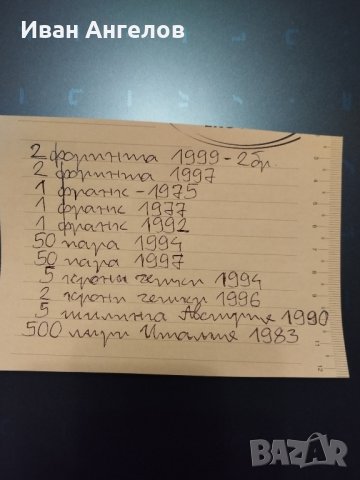 Иван Ангелов
2 форинта 1999 - 2 бр.
2 форинта 1997
1 франк - 1975
1 франк 1977
1 франк 1992
50 пара 1994
50 пара 1997
5 крони чешки 1994
2 крони чешки 1996
5 шилинга Австрия 1990
500 лири Италия 1983
BAZAR